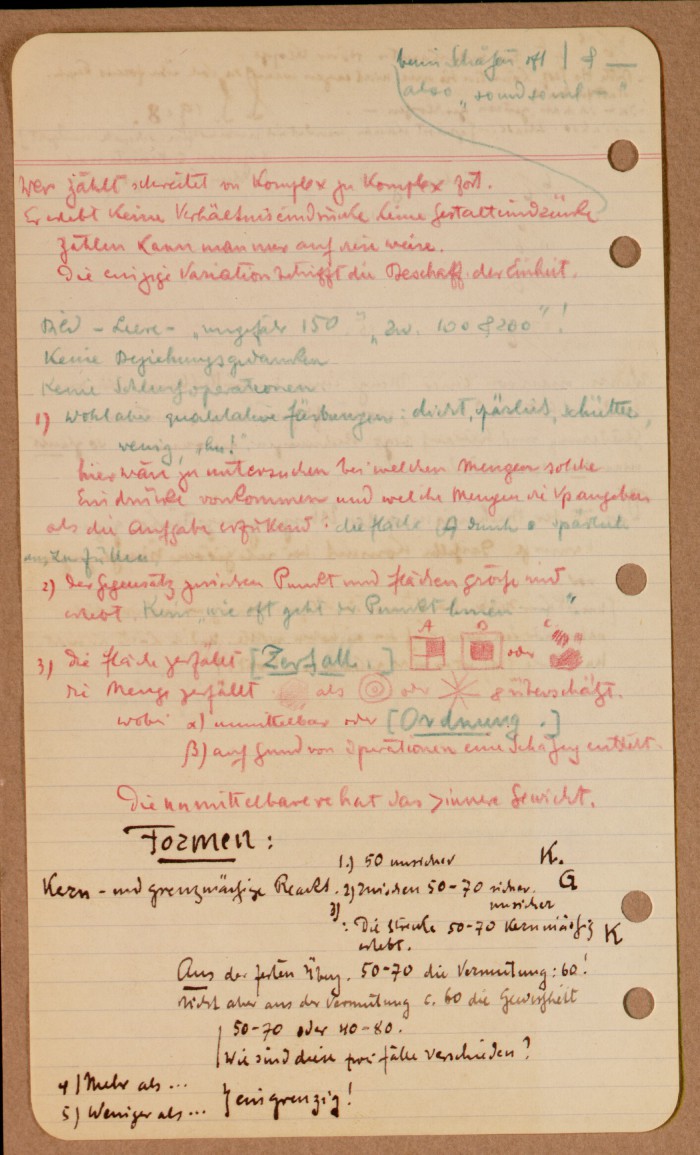 beim Schätzen oft
also "
Wer zählt schreitet von Komplex zu Komplex fort.
Er erlebt keine Verhältniseindrücke keine Gestalteindrücke
Zählen kann man nur auf eine weise.
Die einzige Variation betrifft die Beschaff. der Einheit.
Bild - Leere - "ungefähr 150" "zw. 100 & 200"!
Keine Beziehungsgedanken
Keine Schlussoperationen
1) wohl aber qualitative Färbungen: dicht, spärlich, schütter,
wenig,
hier wäre zu untersuchen bei welchen Mengen solche
Eindrücke vorkommen und welche Mengen die Vp angeben
als die Aufgabe erfüllend: die Fläche (A) durch spärlich
auszufüllen
2) der Gegensatz zwischen Punkt und Flächengröße wird
erlebt. Kein "wie oft geht der Punkt hinein"
A B C
3) die Fläche zerfällt [Zerfall.] oder
die Menge zerfällt als oder & überschätzt.
wobei α) unmittelbar oder [Ordnung.]
β) auf Grund von Operationen eine Schätzg entsteht.
Die unmittelbarere hat das > innere Gewicht.
Formen:
1.) 50 unsicher K.
Kern- und grenzmäßige Reackt. 2) Zwischen 50-70 sicher. G
unsicher
3) : Die Strecke 50-70 kernmäßig K
erlebt.
Aus der festen Überz. 50-70 die Vermutung: 60!
Nicht aber aus der Vermutung c. 60 die Gewißheit
50-70 oder 40-80.
Wie sind diese zwei Fälle verschieden?
4) Mehr als ...
5) Weniger als ... } eingrenzig!